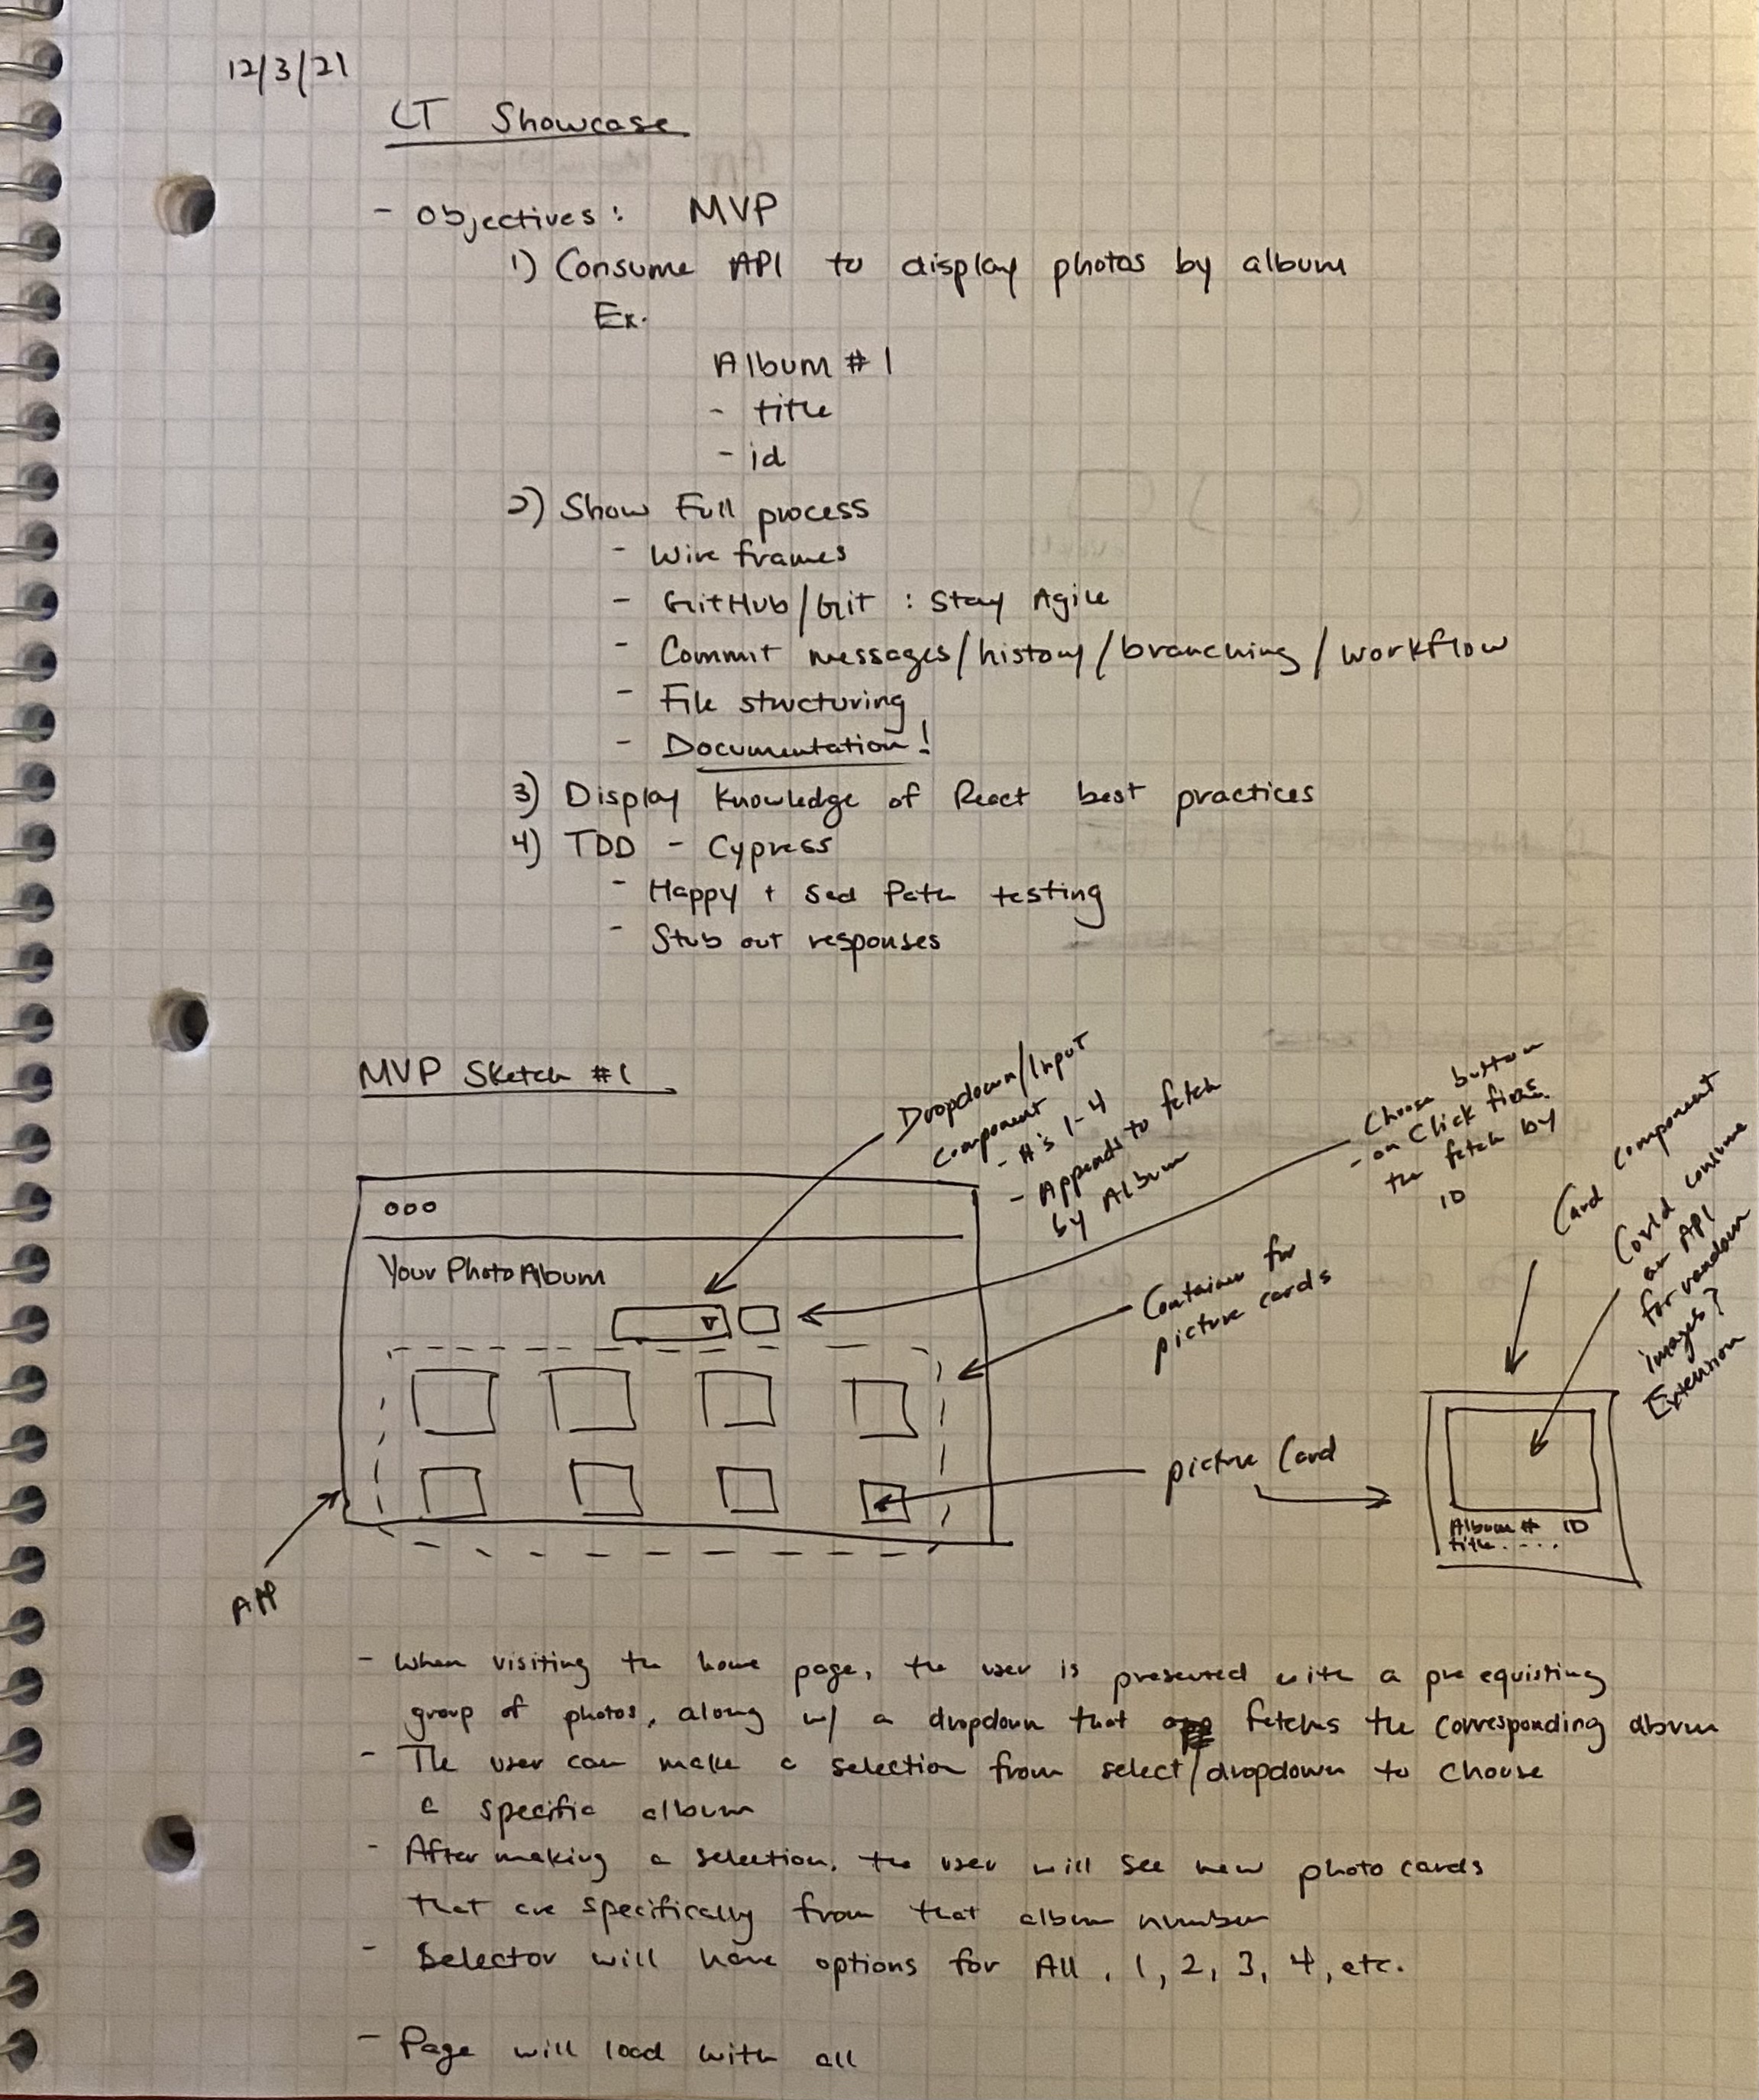 12/3/21
LT Showcase
- Objectives: MVP
1) Consume API to display photos by album
Ex.
Album #1
- title
- id
2) Show Full process
- Wire frames
- GitHub/Git : Stay Agile
- Commit messages/history/branching/workflow
- File structuring
- Documentation!
3) Display Knowledge of React best practices
4) TDD - Cypress
- Happy + Sad Path testing
- Stub out responses
MVP Sketch #1
Dropdown/Input
component
- #'s 1-4
- Appends to fetch
by Album
Choose button
- on Click fires
the fetch by
ID
Card component
Could consume
an API
for random
images?
Extension
ooo
Your Photo Album
Container for
picture cards
picture Card
Album # ID
title. - - .
APP
- When visiting the home page, the user is presented with a pre equisting
group of photos, along w/ a dropdown that fetches the corresponding album
- The user can make a selection from select/dropdown to choose
a specific album
- After making a selection, the user will see new photo cards
that are specifically from that album number
- Selector will have options for All, 1, 2, 3, 4, etc.
- Page will load with all